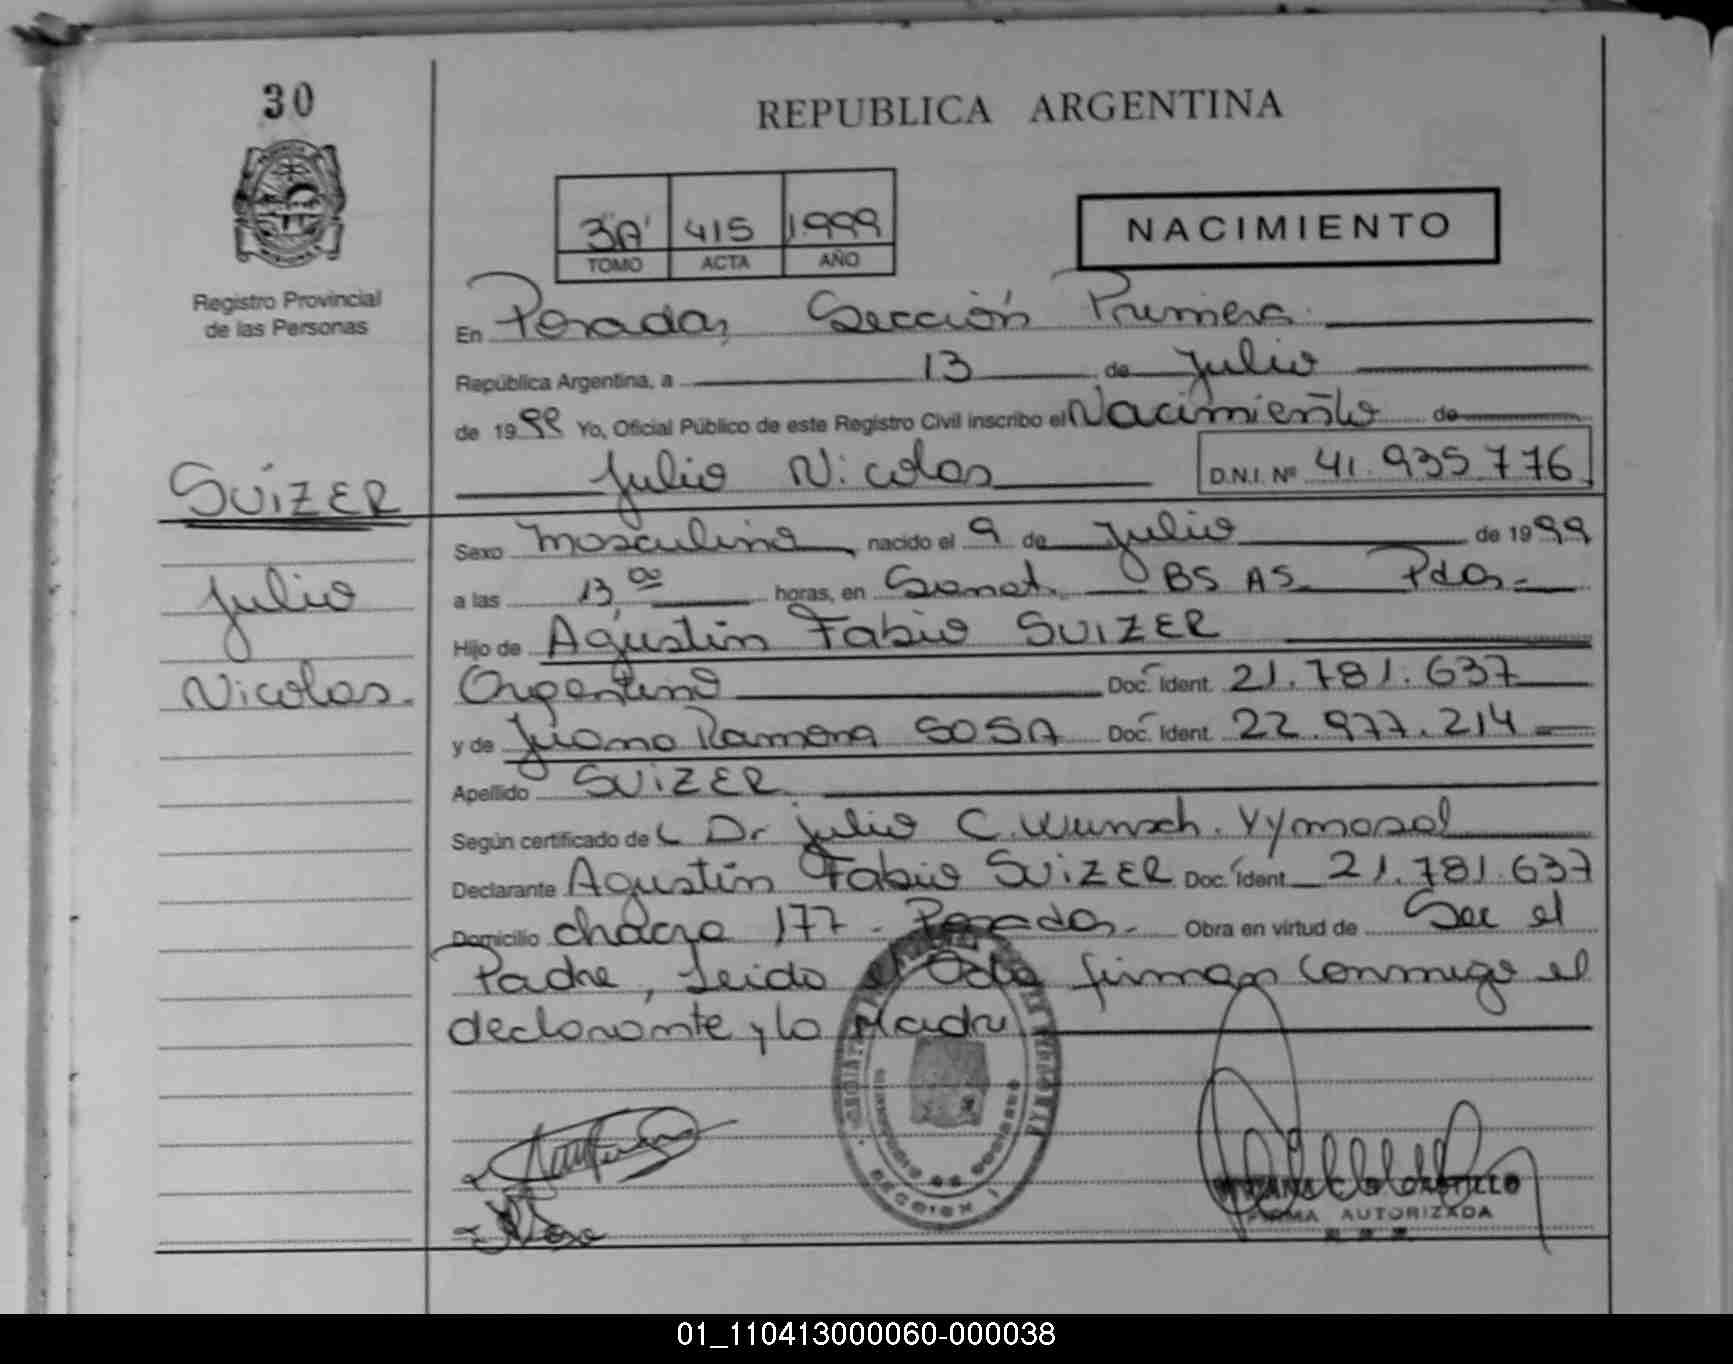 30
REPUBLICA ARGENTINA
Registro Provincial
de las Personas
3"A" 415 1999
TOMO ACTA AÑO
NACIMIENTO
En Posadas, Sección Primera
República Argentina, a 13 de Julio
de 1999 Yo, Oficial Público de este Registro Civil inscribo el Nacimiento de
Julio Nicolas D.N.I. Nº 41.935.776
SUIZER
Julio
Nicolas.
Sexo Masculino, nacido el 9 de Julio de 1999
a las 13,00 horas, en Sanat. BS AS Pdas.
Hijo de Agustin Fabio SUIZER
Argentino Doc. Ident. 21.781.637
y de Juana Ramona SOSA Doc. Ident. 22.977.214
Apellido SUIZER
Según certificado de Dr Julio C. Wunsch.
Declarante Agustin Fabio SUIZER Doc. Ident. 21.781.637
Domicilio chacra 177 - Posadas. Obra en virtud de Ser el
Padre, Leido el Acta firman conmigo el
declarante y la Madre
FIRMA AUTORIZADA
01_110413000060-000038